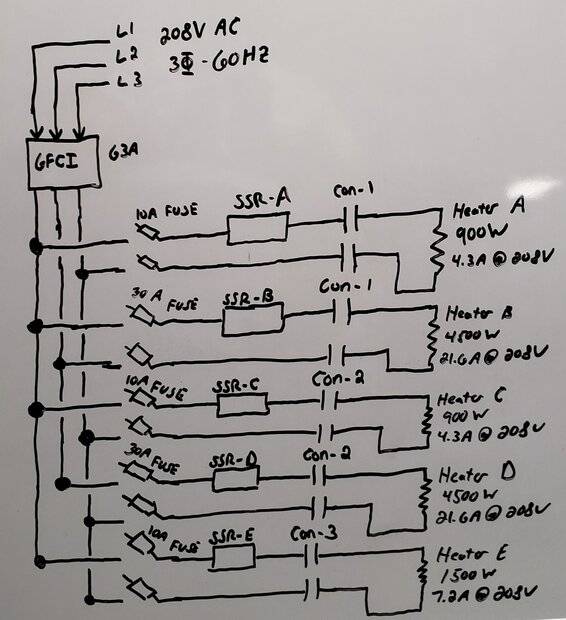 L1 208V AC
L2 3Φ-60HZ
L3
GFCI G3A
10A FUSE SSR-A Con-1 Heater A
900W
4.3A @ 208V
30 A FUSE SSR-B Con-1 Heater B
4500W
21.6A @ 208V
10A FUSE SSR-C Con-2 Heater C
900W
4.3A @ 208V
30A FUSE SSR-D Con-2 Heater D
4500W
21.6A @ 208V
10A FUSE SSR-E Con-3 Heater E
1500W
7.2A @ 208V